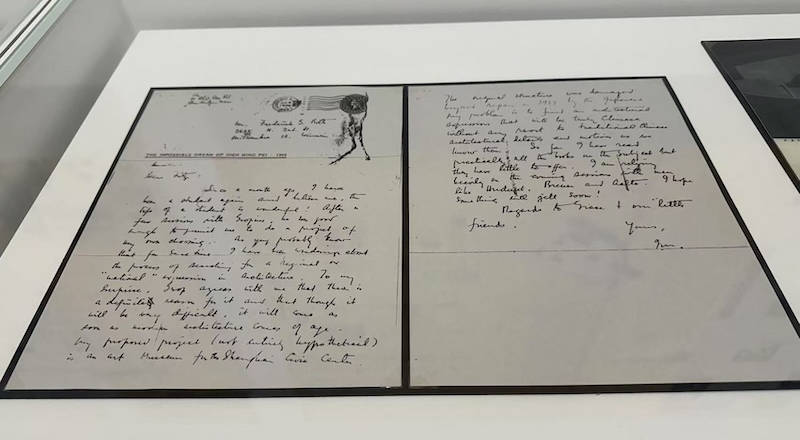 Mr. Frederick S. Roth
THE IMPOSSIBLE DREAM OF IEOH MING PEI - 1946
Dear Fritz:
Since a month ago, I have
been a student again and believe me, the
life of a student is wonderful. After a
few sessions with Gropius, he was good
enough to permit me to do a project of
my own choosing. As you probably know
that for some time I have been wondering about
the process of searching for a regional or
"national" expression in Architecture. To my
surprise, Grop agrees with me that there is
a definite reason for it and that though it
will be very difficult, it will come as
soon as modern architecture comes of age.
My proposed project (not entirely hypothetical)
is an Art Museum for the Shanghai Civic Center.
The original structure was damaged
beyond repair in by the Japanese
My problem is to find an architectural
expression that will be truly Chinese
without any resort to traditional Chinese
architectural details and motives as we
know them. So far I have read
practically all the books on the subject but
they have little to offer. I am relying
heavily on the coming sessions with men
like Hudnut, Breuer and Aalto. I hope
something will gell soon!
Regards to Grace & our little
friends.
Yours,